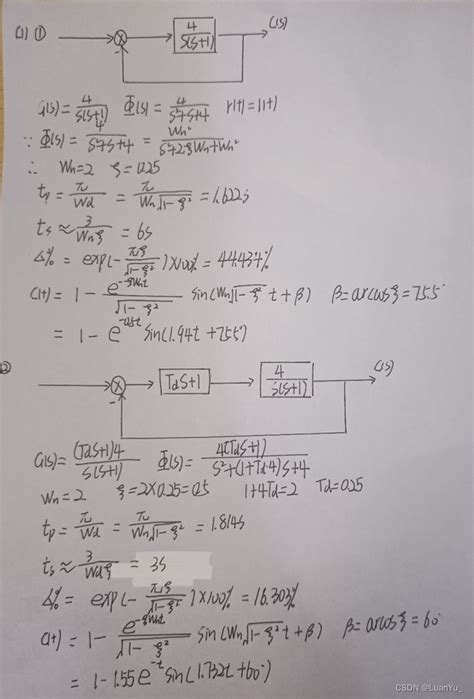 (1) ① 4/S(S+1) C(s)
G(s)=4/S(S+1) Φ(s)=4/S²+S+4 r(t)=1(t)
∵ Φ(s)=4/S²+S+4 = Wn²/S²+2ξWnS+Wn²
∴ Wn=2 ξ=0.25
tp=π/Wd = π/Wn√1-ξ² =1.622s
ts≈3/Wnξ =6s
Δ% = exp(-πξ/√1-ξ²)×100% = 44.437%
C(t)= 1 - e^-ξWnt/√1-ξ² sin(Wn√1-ξ² t+β) β=arcosξ=75.5°
= 1 - e^-0.5t sin(1.94t+75.5°)
② TdS+1 4/S(S+1) C(s)
G(s)=(TdS+1)4/S(S+1) Φ(s)=4(TdS+1)/S²+(1+Td·4)S+4
Wn=2 ξ=2×0.25=0.5 1+4Td=2 Td=0.25
tp=π/Wd = π/Wn√1-ξ² =1.814s
ts≈3/Wdξ = 3s
Δ% = exp(-πξ/√1-ξ²)×100% = 16.303%
C(t)= 1 - e^-ξWnt/√1-ξ² sin(Wn√1-ξ² t+β) β=arcosξ=60°
=1-1.55e^-t sin(1.732t+60°)
CSDN @LuanYu_